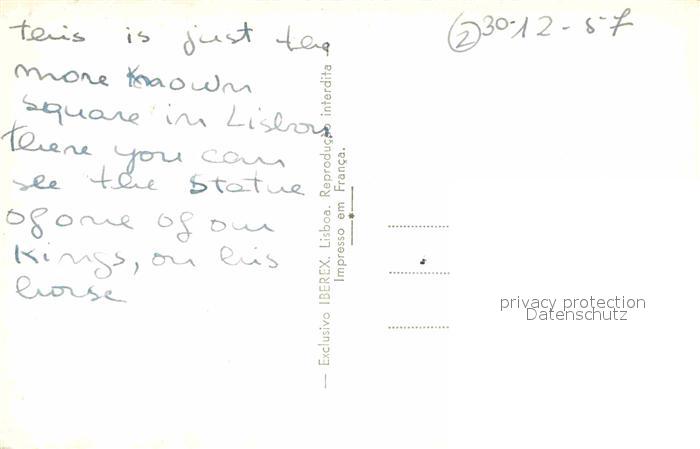 this is just the
more known
square in Lisbon
there you can
see the statue
of one of our
Kings, on his
horse
(2) 30-12-57
— Exclusivo IBEREX. Lisboa. Reprodução interdita —
Impresso em França.
privacy protection
Datenschutz